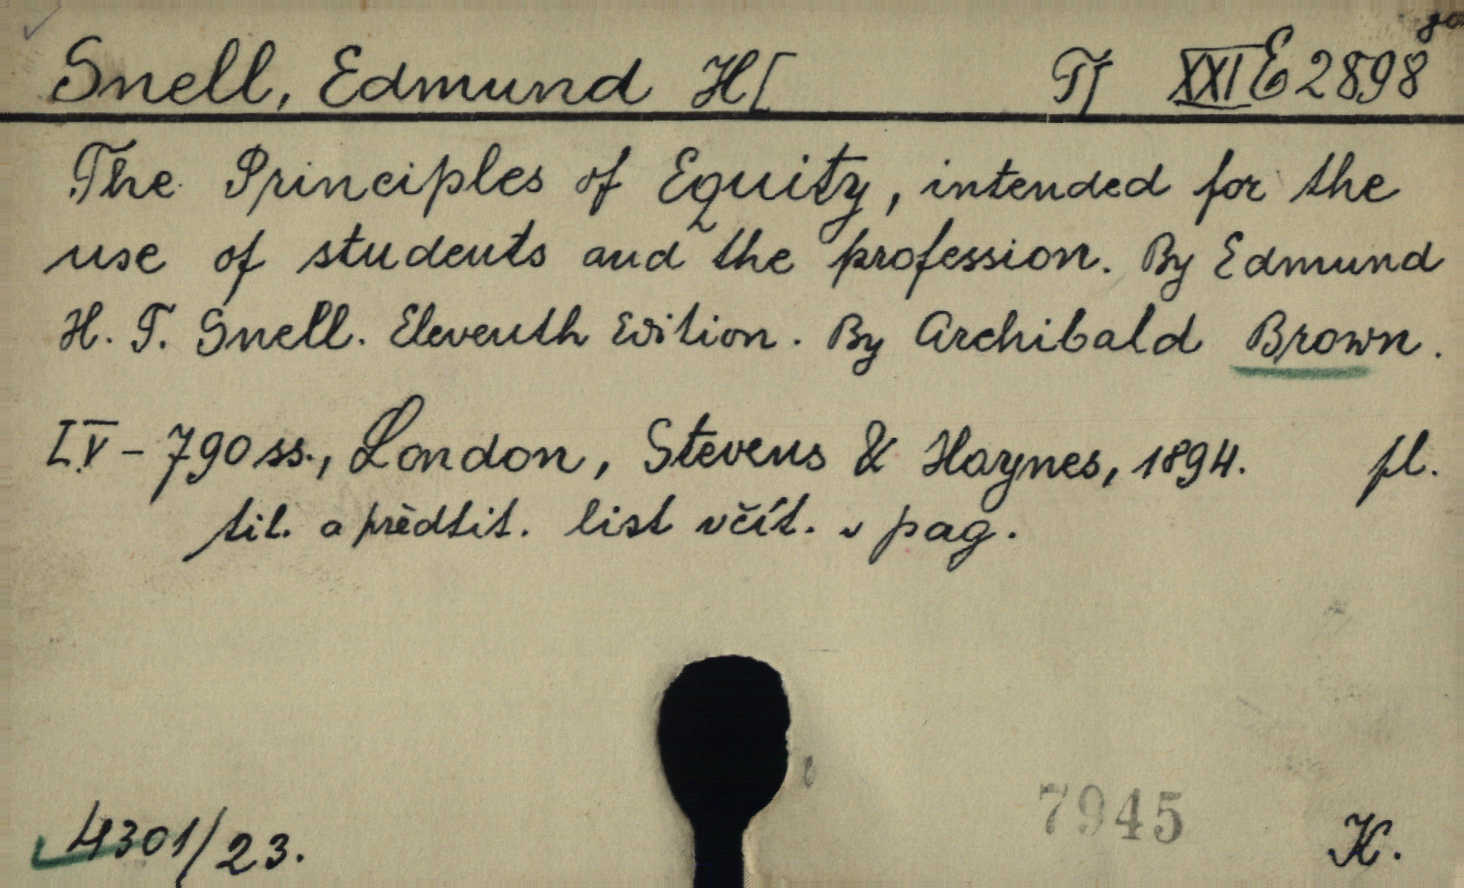 Snell, Edmund H[ T[ XXI E 2898
The Principles of Equity, intended for the
use of students and the profession. By Edmund
H. T. Snell. Eleventh Edition. By Archibald Brown.
LV - 790 ss., London, Stevens & Haynes, 1894. pl.
tit. a předtit. list včít. v pag.
7945
4301/23. K.